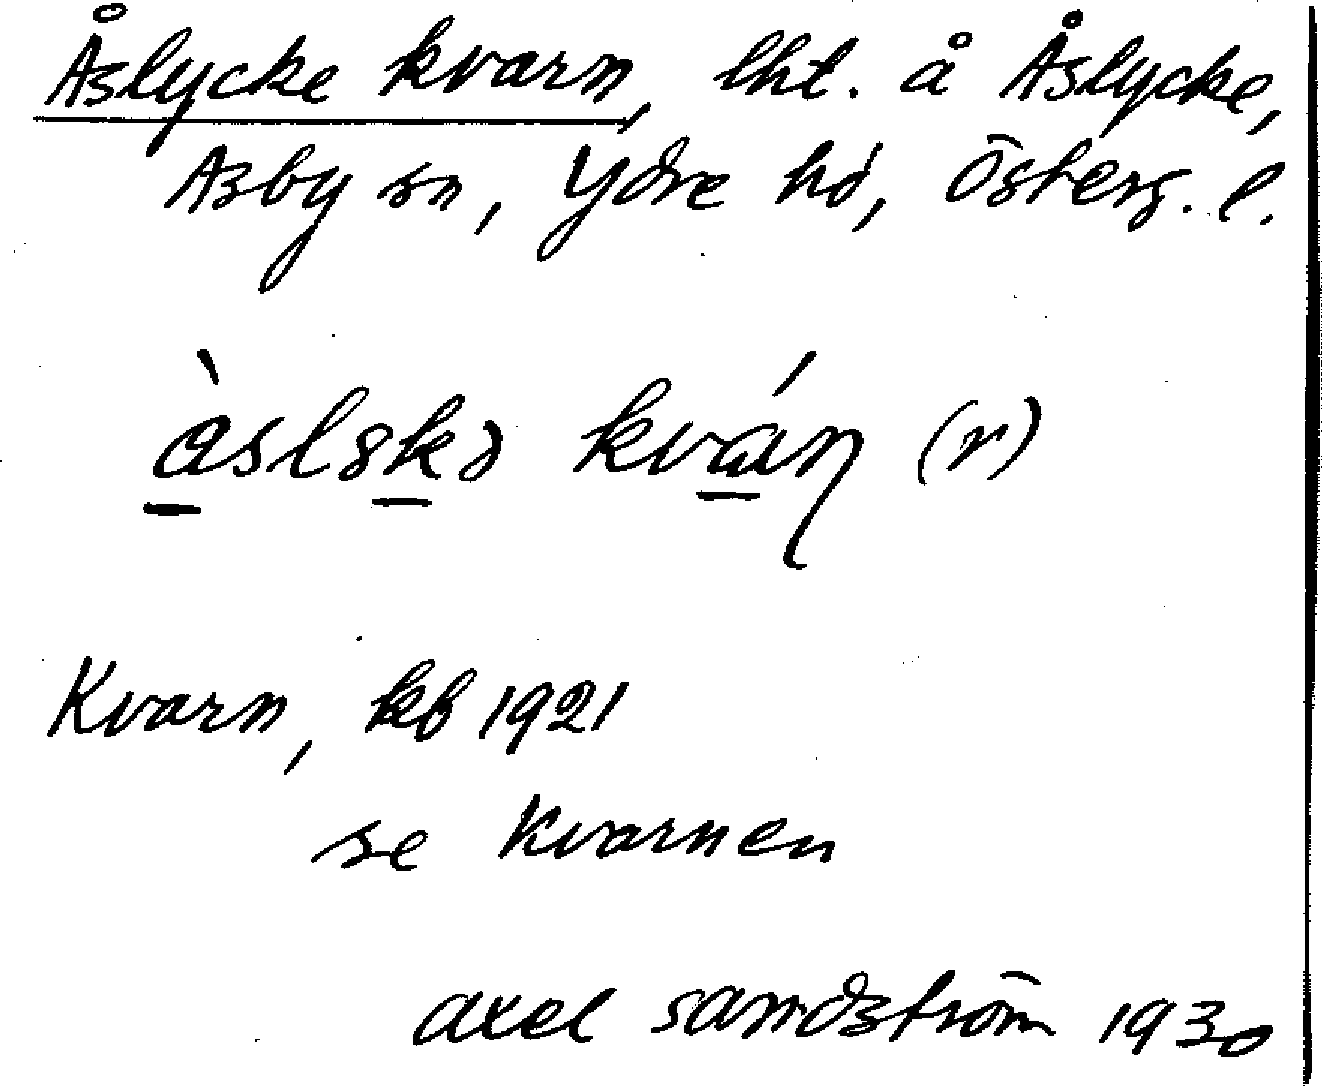 Åslycke kvarn, lht. å Åslycke,
Asby sn, Ydre hd, Österg. l.
àslskə kváɳ (r)
Kvarn, kb 1921
se Kvarnen
axel sandström 1930